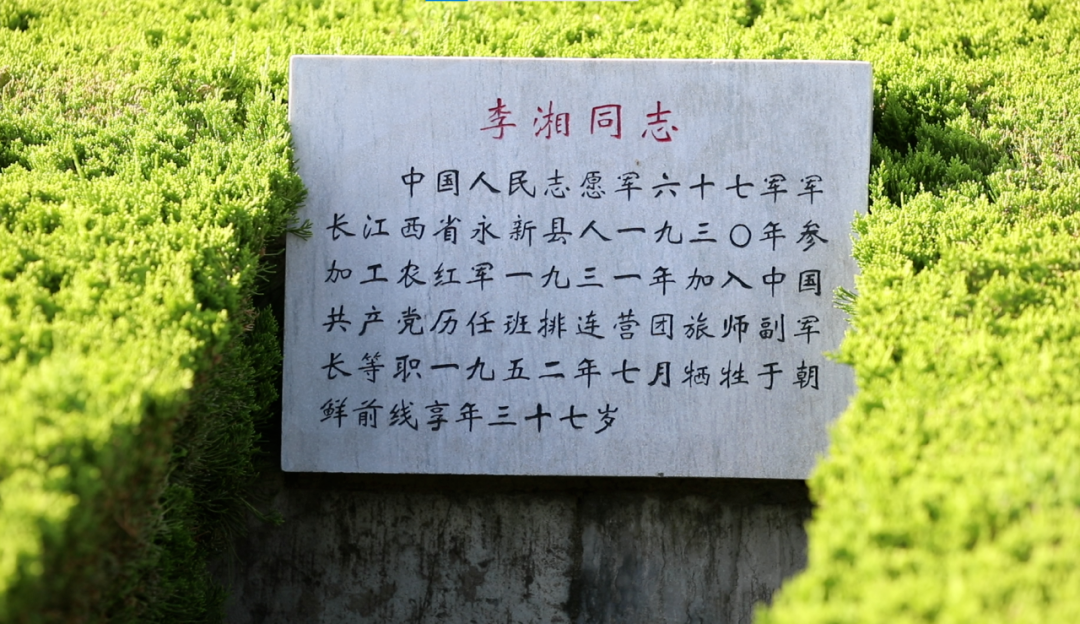 李湘同志
中国人民志愿军六十七军军
长江西省永新县人一九三〇年参
加工农红军一九三一年加入中国
共产党历任班排连营团旅师副军
长等职一九五二年七月牺牲于朝
鲜前线享年三十七岁